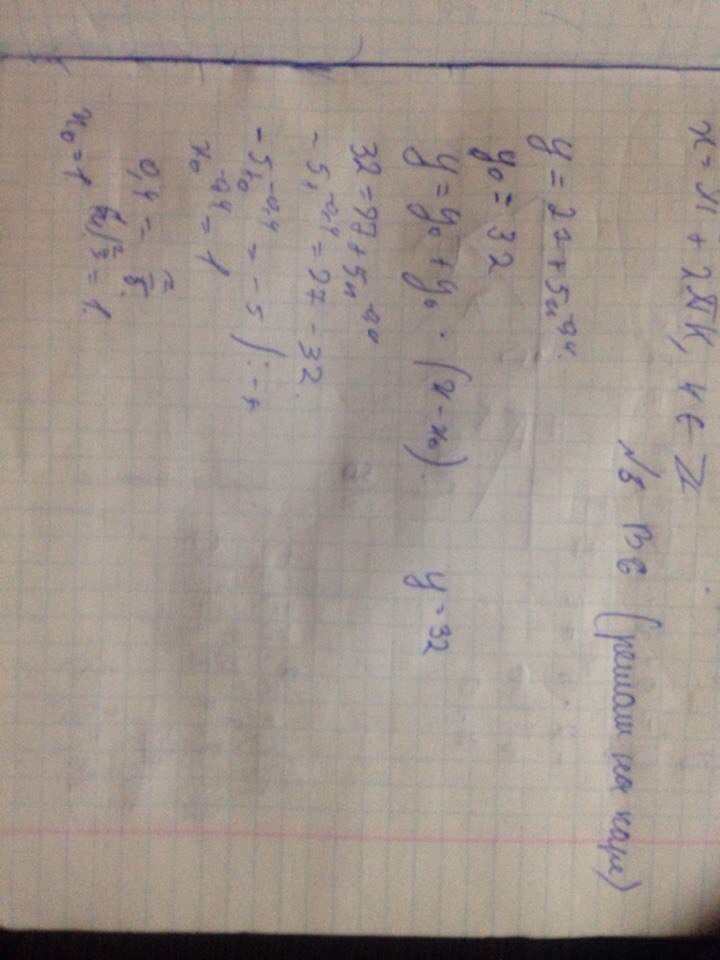 x = π + 2πk, k ∈ Z
№ 8 B6 (решали на паре)
y = 27 + 5x^-0,4
y₀ = 32
y = y₀ + y₀ · (x - x₀)   y = 32
32 = 27 + 5x^-0,4
-5x^-0,4 = 27 - 32
-5x₀^-0,4 = -5 / :-5
x₀^-0,4 = 1
0,4 = 2/5
x₀ = 1